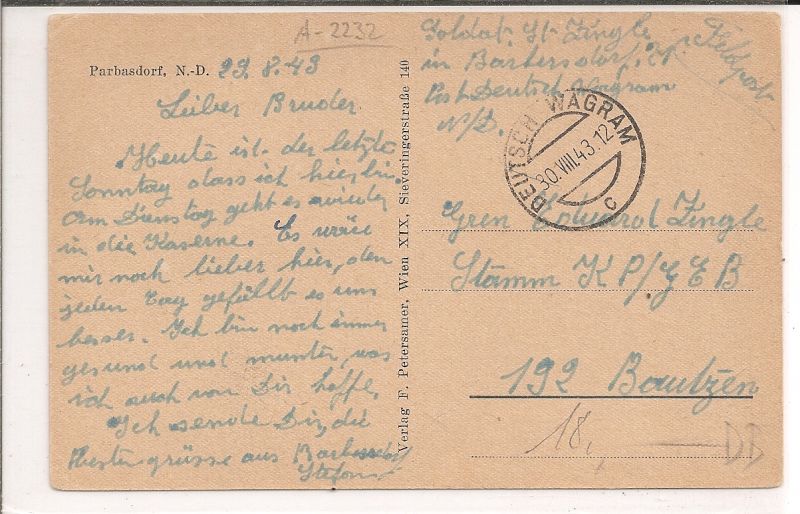 A-2232
Parbasdorf, N.-D. 29.8.43
Lieber Bruder.
Heute ist der letzte
Sonntag dass ich hier bin.
Am Dienstag geht es wieder
in die Kaserne. Es wäre
mir noch lieber hier, den
jeden Tag gefällt es uns
besser. Ich bin noch immer
gesund und munter, was
ich auch von Dir hoffe.
Ich sende Dir, die
Besten grüsse aus
Stefan
Verlag F. Petersamer, Wien XIX, Sieveringerstraße 140
Soldat. St. Zingle
in
Post Deutsch Wagram
N/D.
Feldpost
DEUTSCH WAGRAM
30.VIII.43.12
c
Gren Eduard Zingle
Stamm K P/G E B
192 Bautzen
18,
DB